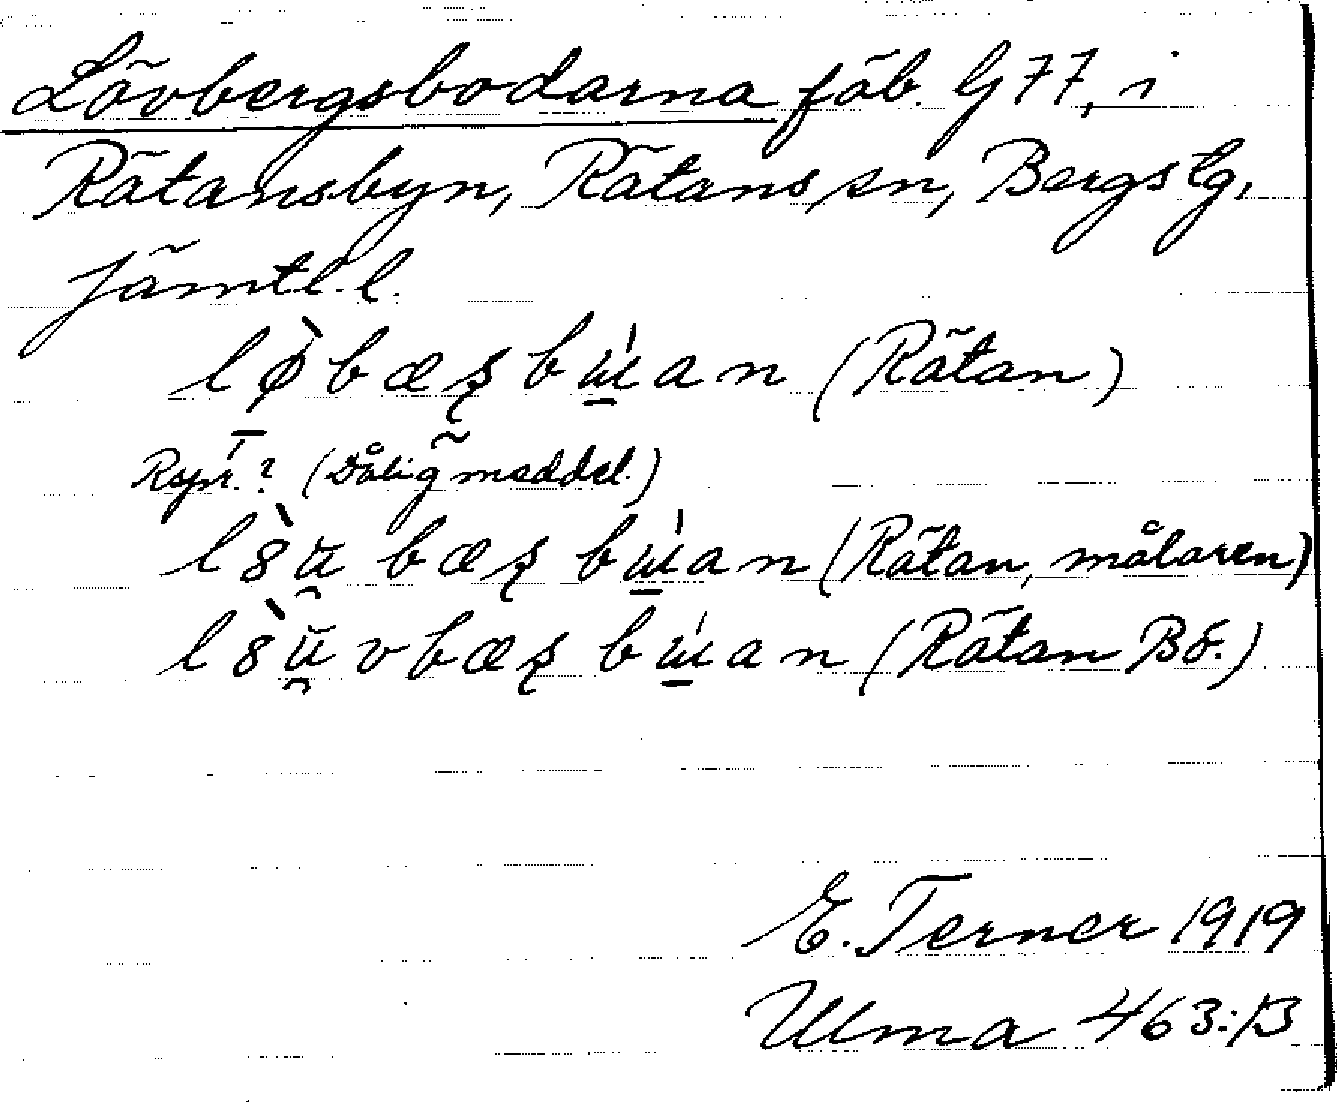 Lövbergsbodarna fäb. G 77, i
Rätansbyn, Rätans sn, Bergs tg,
Jämtl. l.
lø̀bæʂbɯ́an (Rätan)
Rspr.? (Dålig meddel.)
l8̀u̯bæʂbɯ́an (Rätan, målaren)
l8̀u̯vbæʂbɯ́an (Rätan Bö.)
E. Terner 1919
Ulma 463:13